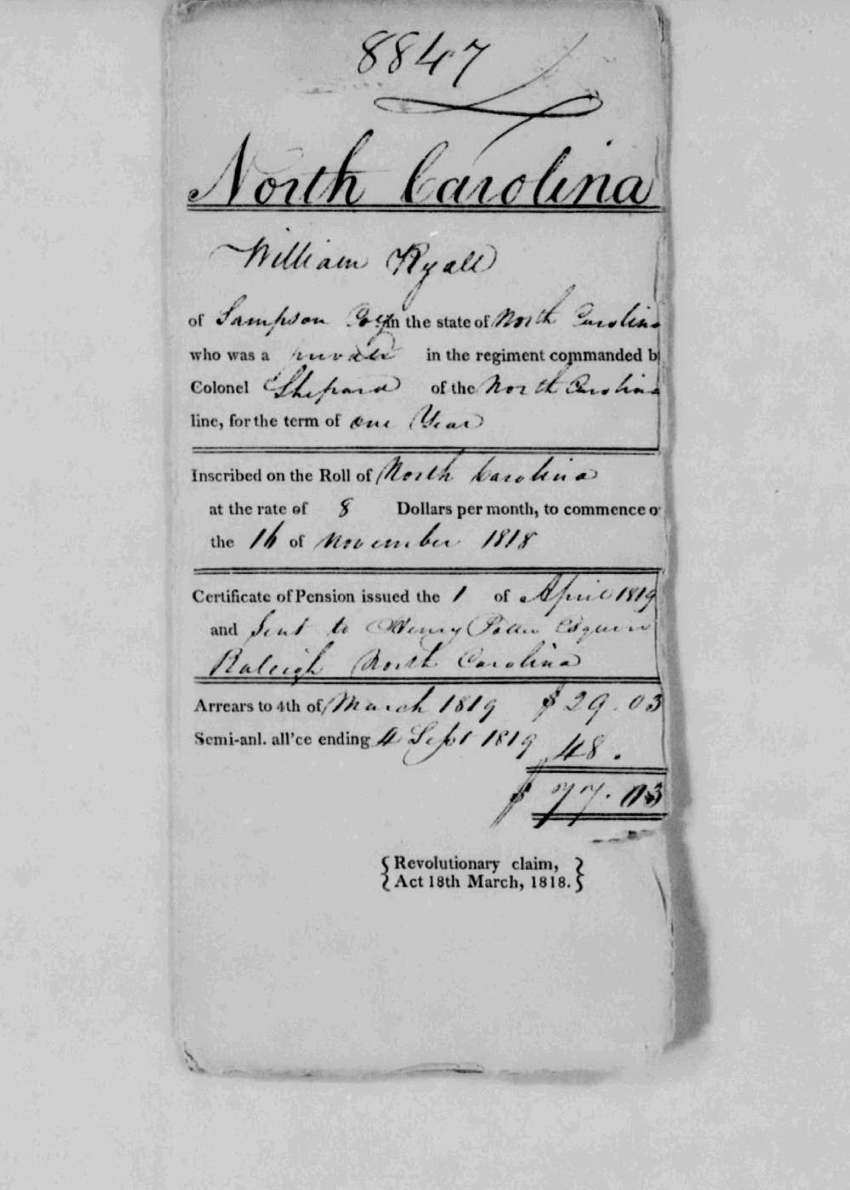 8847
North Carolina
William Ryall
of Sampson Coy in the state of North Carolina
who was a private in the regiment commanded b
Colonel Shepard of the North Carolina
line, for the term of one Year
Inscribed on the Roll of North Carolina
at the rate of 8 Dollars per month, to commence o
the 16 of November 1818
Certificate of Pension issued the 1 of April 1819
and Sent to Henry Potter Esquire
Raleigh North Carolina
Arrears to 4th of March 1819 $29.03
Semi-anl. all'ce ending 4 Sept 1819 48.
$77.03
{Revolutionary claim,}
{Act 18th March, 1818.}